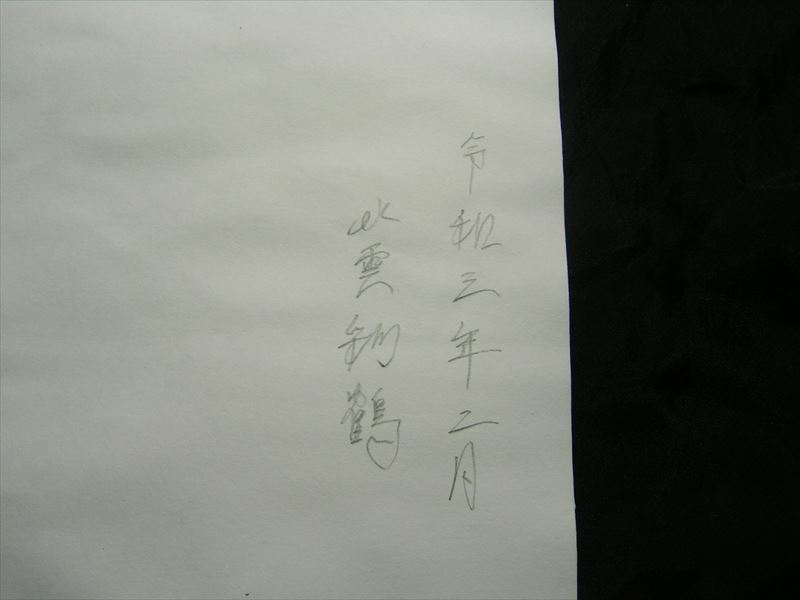 令和三年二月
此雲釣鶴